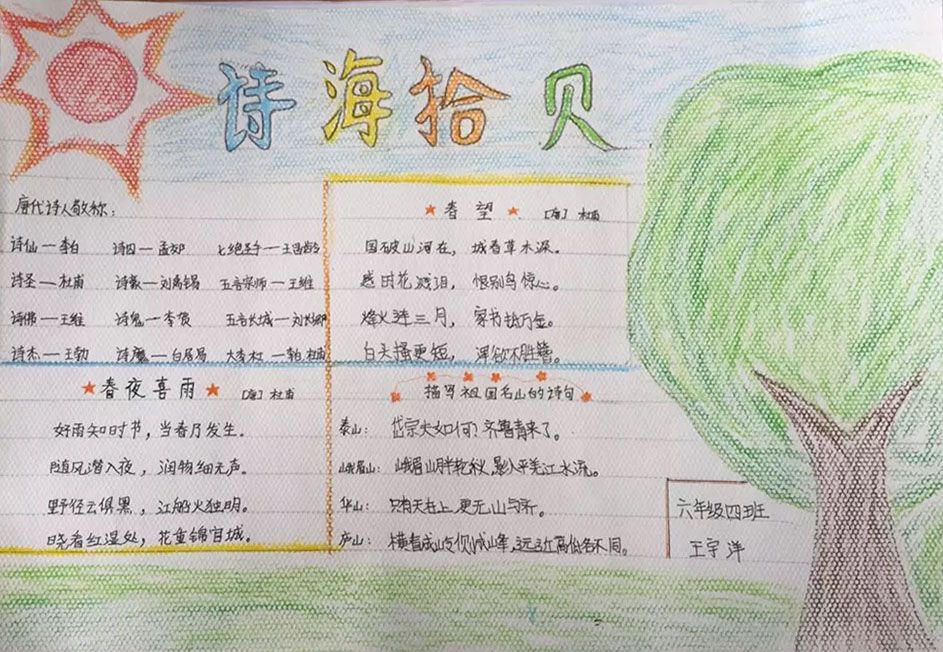 诗海拾贝
唐代诗人敬称：
诗仙—李白 诗囚—孟郊 七绝圣手—王昌龄
诗圣—杜甫 诗豪—刘禹锡 五音宗师—王维
诗佛—王维 诗鬼—李贺 五音长城—刘长卿
诗杰—王勃 诗魔—白居易 大李杜—李白, 杜甫
春望 [唐] 杜甫
国破山河在，城春草木深。
感时花溅泪，恨别鸟惊心。
烽火连三月，家书抵万金。
白天搔更短，浑欲不胜簪。
春夜喜雨 [唐] 杜甫
好雨知时节，当春乃发生。
随风潜入夜，润物细无声。
野径云俱黑，江船火独明。
晓看红湿处，花重锦官城。
描写祖国名山的诗句
泰山：岱宗夫如何？齐鲁青来了。
峨眉山：峨眉山秋，影入平羌江水流。
华山：只有天在上，更无山与齐。
庐山：横看成岭侧成峰，远近高低各不同。
六年级四班
王宇洋